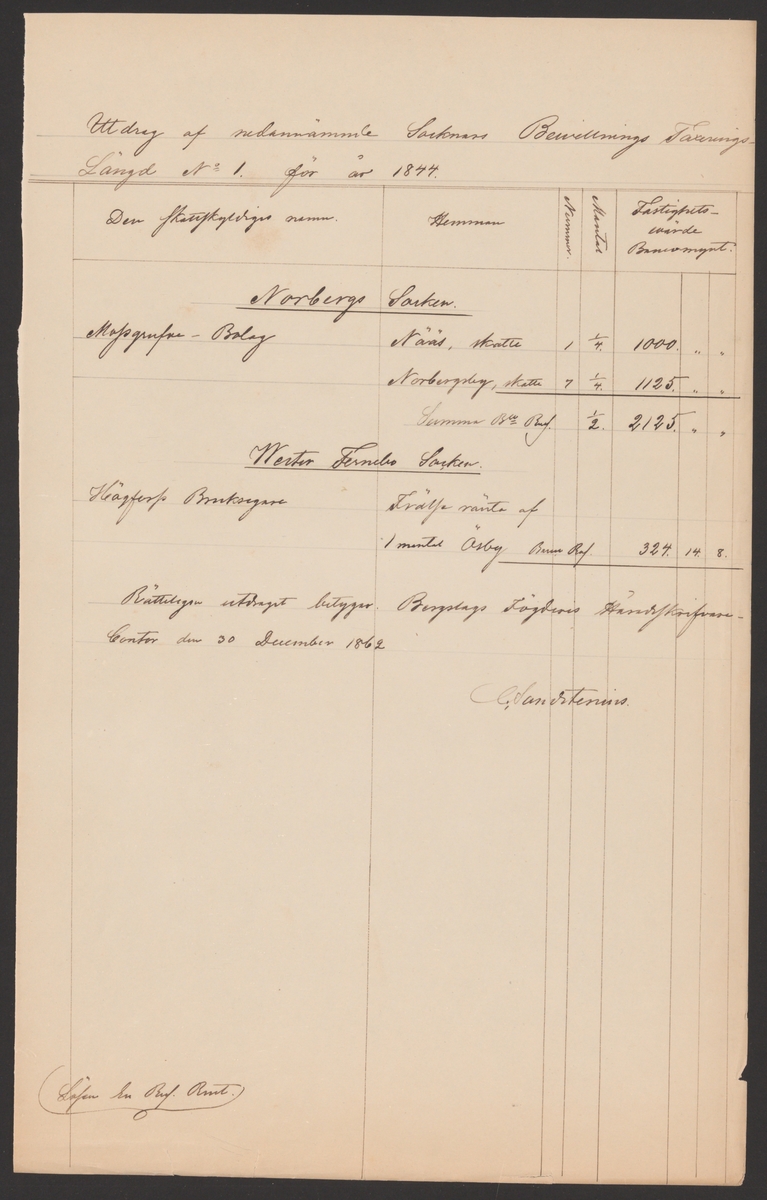 Utdrag af nedannämnde Socknars Bewillnings Taxerings-
Längd No 1. för år 1844.
Den skattskyldiges namn. Hemman Nummer. Mantal Fastighets-
wärde
Bancomynt.
Norbergs Socken.
Mossgrufve - Bolag Nääs, skatte 1 1/4. 1000. " "
Norbergsby, skatte 7 1/4. 1125. " "
Summa Bco Rdr. 1/2. 2125. " "
Wester Fernebo Socken.
Högfors Bruksegare Frälse ränta af
1 mantal Åsby Banco Rdr. 324. 14. 8.
Rätteligen utdraget betygar. Bergslags Fögderis Häradsskrifvare-
Contor den 30 December 1862
C. Sandstenius.
(Lösen En Rdr. Rmt.)